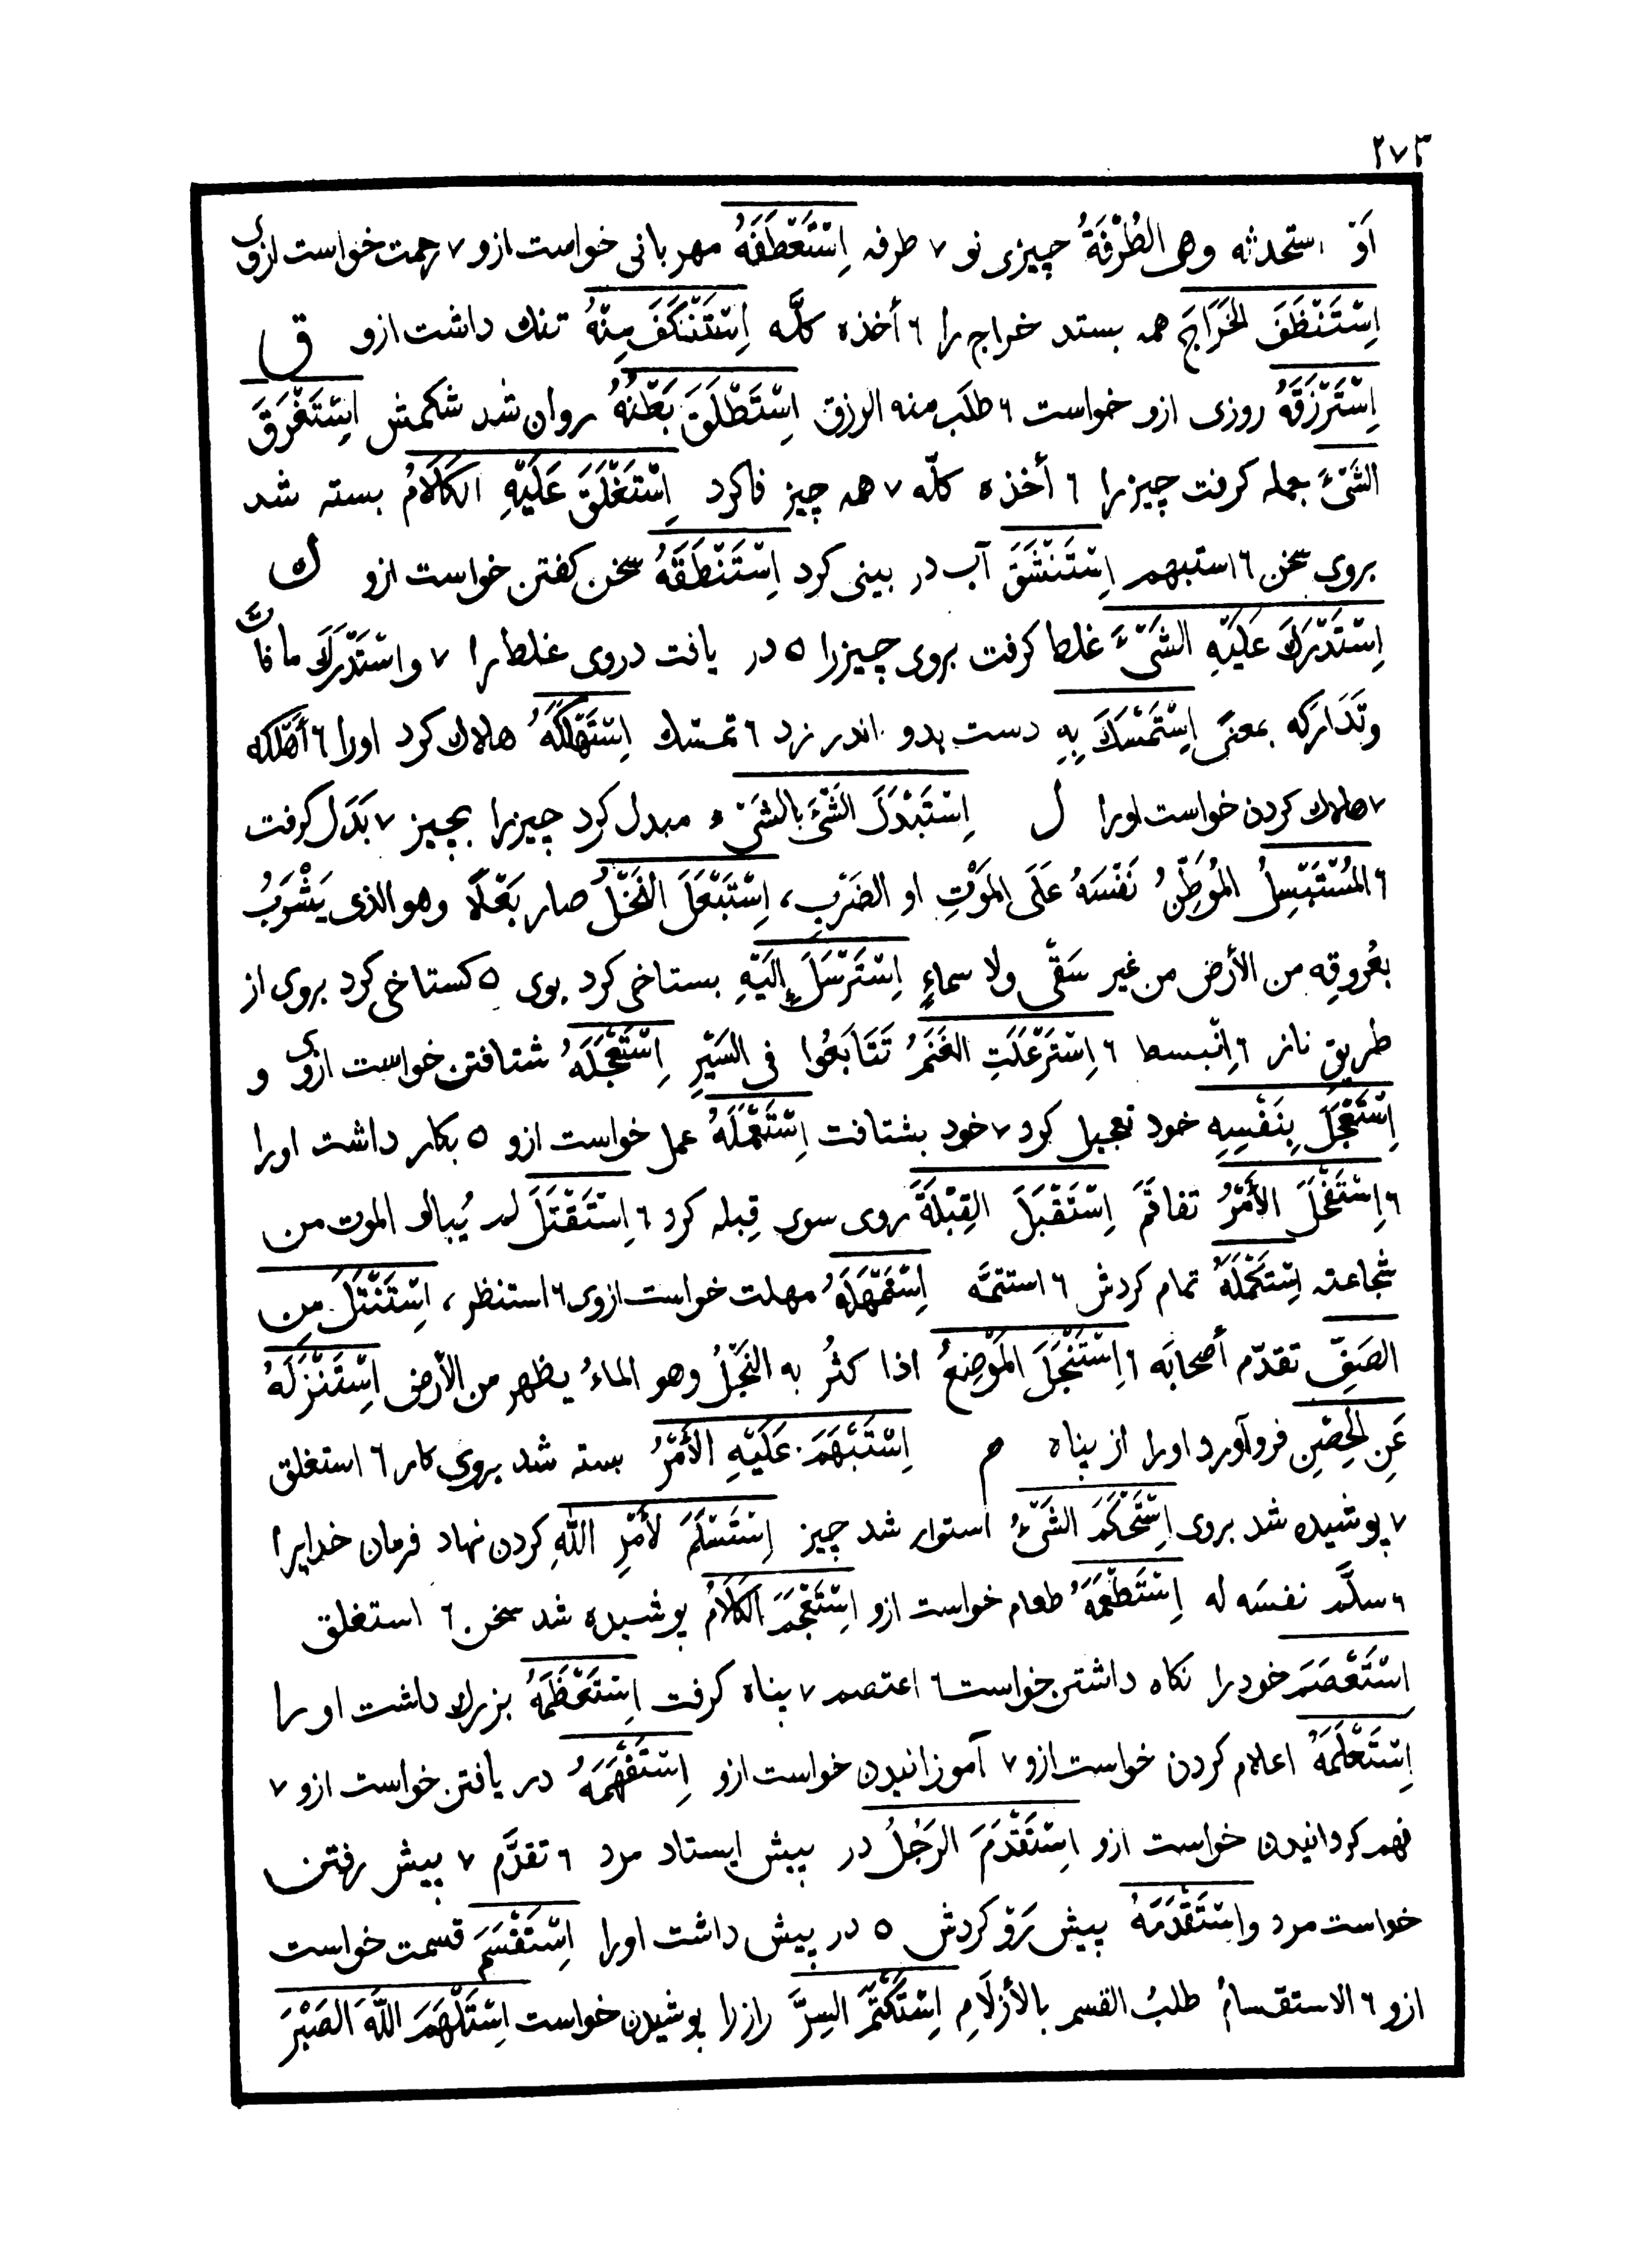 ٢٧٣
اَوّ استحدثه وهی الطُرْفَةُ چیزی نو ٧ طرفه اِسْتَعْطَفَهُ مهربانی خواست ازو ٧ رحمت خواست ازوی
اِسْتَنْظَفَ الخَرَاجَ همه بستد خراج را ٦ أخذه كلَّه اِسْتَنْكَفَ مِنْهُ ننك داشت ازو ق
اِسْتَرْزَقَهُ روزی ازو خواست ٦ طلَب منه الرزق اِسْتَطْلَقَ بَطْنُهُ روان شد شكمش اِسْتَغْرَقَ
الشَیْءَ جمله كرفت چیزرا ٦ أخذه كلّه ٧ همه چیز فاكرد اِسْتَغْلَقَ عَلَيْهِ الكَلَامُ بسته شد
بروی سخن ٦ استبهم اِسْتَنْشَقَ آب در بینی كرد اِسْتَنْطَقَهُ سخن كفتن خواست ازو ك
اِسْتَدْرَكَ عَلَيْهِ الشَیْءَ غلط كرفت بروی چیزرا ٥ در یافت دروی غلط را ٧ واسْتَدْرَكَ ما فاتَ
وتَدَاركه بمعنًی اِسْتَمْسَكَ بِهِ دست بدو اندر زد ٦ تمسّك اِسْتَهْلَكَهُ هلاك كرد اورا ٦ أهْلكه
٧ هلاك كردن خواست اورا ل اِسْتَبْدَلَ الشَیْءَ بالشَیْءِ مبدل كرد چیزرا بچیز ٧ بَدَل كرفت
٦ المُسْتَبْسِلُ المُوَطِّنُ نَفْسَهُ عَلَی المَوْتِ او الضَرْبِ، اِسْتَبْعَلَ النَخْلُ صار بَعْلًا وهو الذی يَشْرَبُ
بعُروقِه من الأرض من غير سَقْی ولا سماءٍ اِسْتَرْسَلَ إِلَيْهِ بستاخی كرد بوی ٥ كستاخی كرد بروی از
طریق ناز ٦ اِنْبسط ٦ اِسْتَرْعَلَتِ الغَنَمُ تَتَابَعُوا فی السَيْرِ اِسْتَعْجَلَهُ شتافتن خواست ازوی و
اِسْتَعْجَلَ بِنَفْسِهِ خود تعجیل كرد ٧ خود بشتافت اِسْتَعْمَلَهُ عمل خواست ازو ٥ بكار داشت اورا
٦ اِسْتَفْحَلَ الأَمْرُ تفاقَمَ اِسْتَقْبَلَ القِبْلَةَ روی سوی قِبله كرد ٦ اِسْتَقْتَلَ لم يُبالِ الموت من
شجاعته اِسْتَكْمَلَهُ تمام كردش ٦ استتمّه اِسْتَمْهَلَهُ مهلت خواست ازوی ٦ استنظر، اِسْتَنْتَلَ مِن
الصَفِّ تقدّم أصحابَه ٦ اِسْتَنْجَلَ المَوْضِعُ اذا كثُر به النَجْلُ وهو الماءُ يظهر من الأرض اِسْتَنْزَلَهُ
عَنِ الحِصْنِ فروآورد اورا از پناه م اِسْتَبْهَمَ عَلَيْهِ الأَمْرُ بسته شد بروی كار ٦ استغلق
٧ پوشیده شد بروی اِسْتَحْكَمَ الشَیْءُ استوار شد چیز اِسْتَسْلَمَ لأَمْرِ اللّٰهِ كردن نهاد فرمان خدایرا
٦ سلَّم نفسَه له اِسْتَطْعَمَهُ طعام خواست ازو اِسْتَعْجَمَ الكَلَامُ پوشیده شد سخن ٦ استغلق
اِسْتَعْصَمَ خودرا نكاه داشتن خواست ٦ اعتصم ٧ پناه كرفت اِسْتَعْظَمَهُ بزرك داشت اورا
اِسْتَعْلَمَهُ اعلام كردن خواست ازو ٧ آموزانیدن خواست ازو اِسْتَفْهَمَهُ در یافتن خواست ازو ٧
فهم كردانیدن خواست ازو اِسْتَقْدَمَ الرَجُلُ در پیش ایستاد مرد ٦ تقدَّم ٧ پیش رفتن
خواست مرد واسْتَقْدَمَهُ پیش رَوْ كردش ٥ در پیش داشت اورا اِسْتَقْسَمَ قسمت خواست
ازو ٦ الاستقسامُ طلبُ القسم بالأزلَامِ اِسْتَكْتَمَ السِرَّ رازرا پوشیدن خواست اِسْتَلْهَمَ اللّٰهَ الصَبْرَ